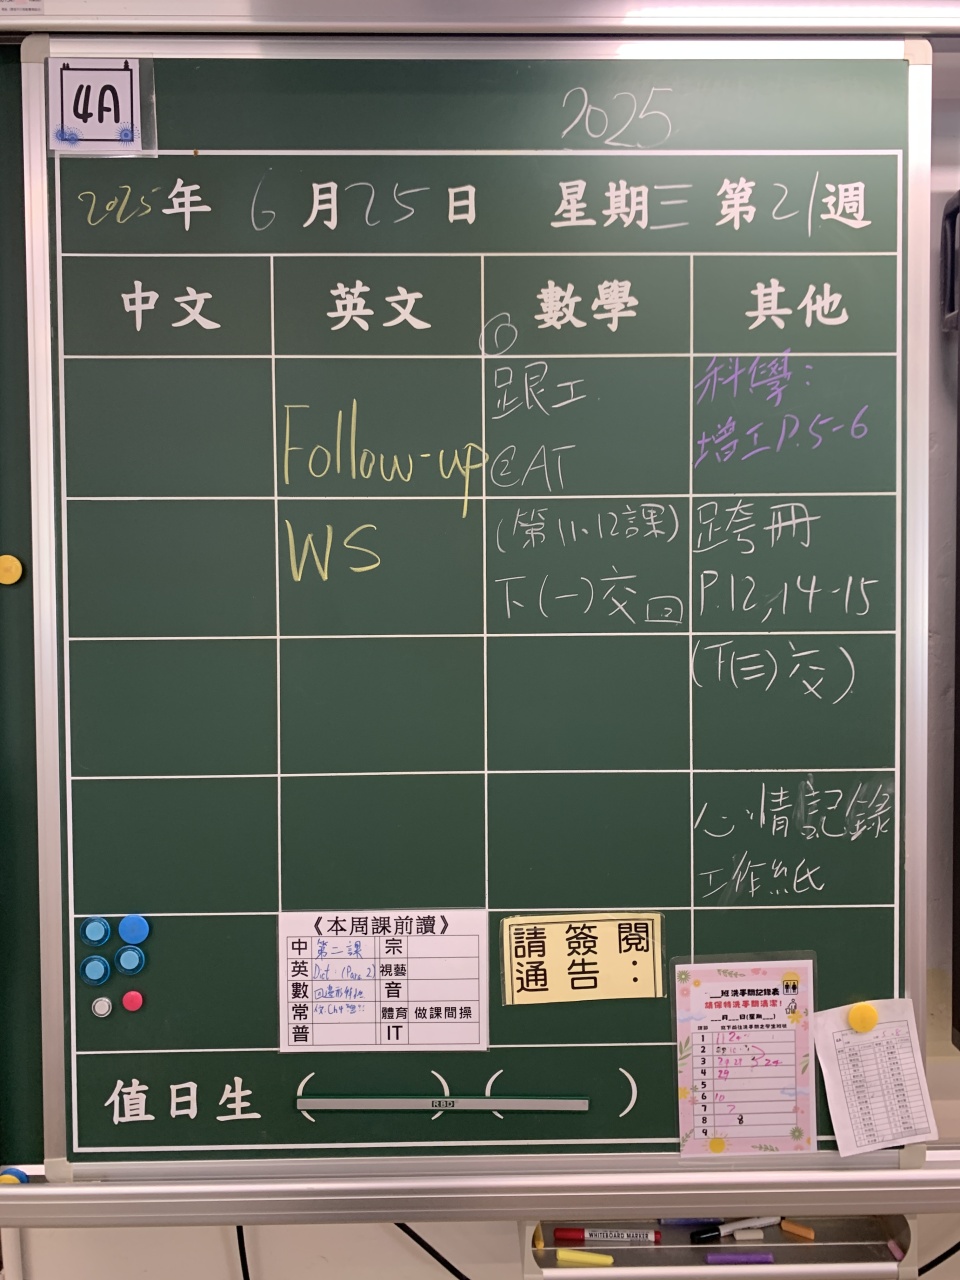 4A
2025
2025年 6月25日 星期三 第21週
中文 英文 數學 其他
Follow-up
WS
①
跟工
②AT
(第11、12課)
下(一)交回
科學:
增工P.5-6
跨冊
P.12,14-15
(下(三)交)
心情記錄
工作紙
《本周課前讀》
中 第二課 宗
英 視藝
數 音
常 體育 做課間操
普 IT
請簽閱:
通告
值日生 ( ) ( )
RBD
班洗手間記錄表
請保持洗手間清潔!
月 日(星期 )
1
2
3
4
5
6 10
7 7
8 8
9
WHITEBOARD MARKER